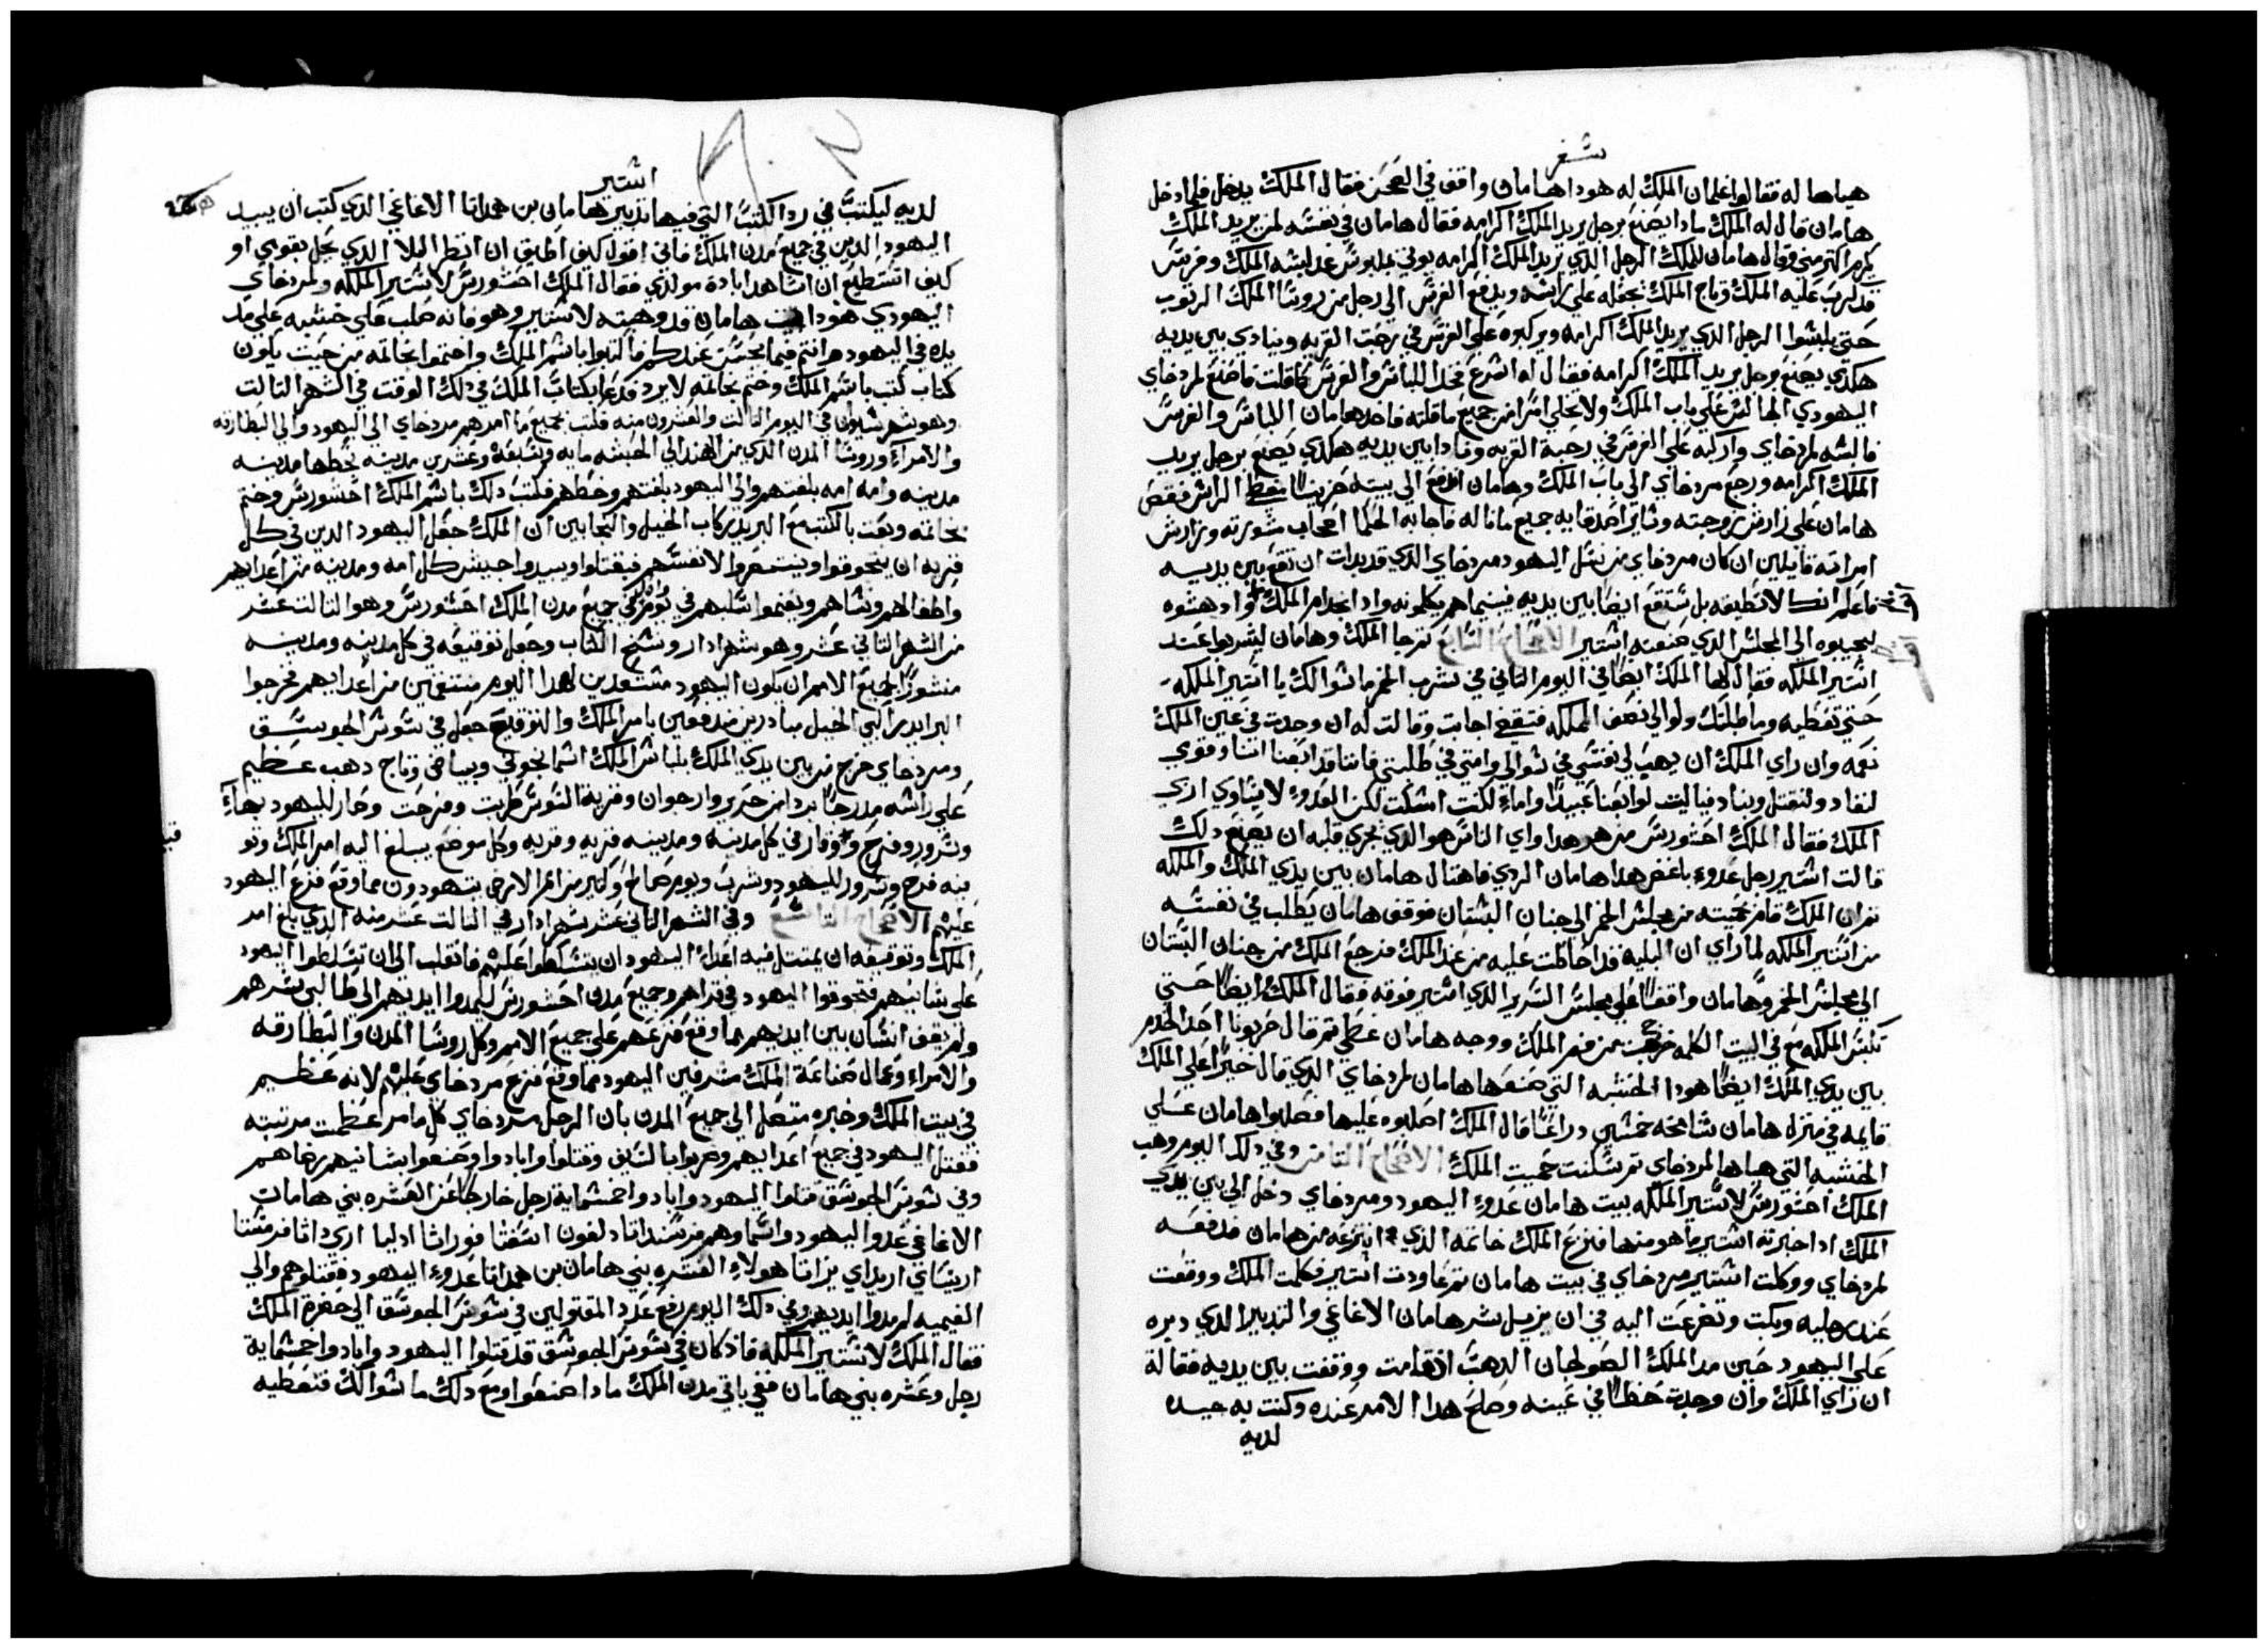 شفر
هياها له فقالوا غلمان الملك له هودا هامان واقف في الصحن فقال الملك يدخل فلما دخل
هامان قال له الملك مادا يصنع برجل يريد الملك اكرامه فقال هامان في نفسه لمن يريد الملك
يكرم اكتر مني وقال هامان للملك الرجل الدي يريد الملك اكرامه يوتي بملبوس قد لبسه الملك وفرس
قد ركب عليه الملك وتاج الملك تجعله علي راسه ويدفع الفرس الي رجل من روسا الملك
حتي يلبسوا الرجل الدي يريد الملك اكرامه ويركبوه علي الفرس في رحبت القريه وينادي بين يديه
هكدي يصنع برجل يريد الملك اكرامه فقال له اسرع فخد اللباس والفرس كما قلت فاصنع لمردخاي
اليهودي الجالس علي باب الملك ولا تخلي امرا من جميع ما قلته فاخد هامان اللباس والفرس
فالبسه لمردخاي واركبه علي الفرس في رحبة القريه ونادا بين يديه هكدي يصنع برجل يريد
الملك اكرامه ورجع مردخاي الي باب الملك وهامان اندفع الي بيته حزينا مغطي الراس فقص
هامان علي زارش زوجته وساير اصدقايه جميع ما ناله فاجابه الحكما اصحاب مشورته وزارش
امراته قايلين ان كان مردخاي من نسل اليهود مردخاي الدي قد بدات ان تقع بين يديه
فاعلم انك لا تطيقه بل ستقع ايضا بين يديه فبينما هم يكلمونه وادا بخدام الملك وادهشوه
ليجيبوه الي المجلس الدي صنعته استير الاصحاح السابع تم جا الملك وهامان ليشربوا عند
استير الملكه فقال لها الملك ايضا في اليوم التاني في شرب الخمر ما سوالك يا استير الملكه
حتي تعطيه وما طلبتك ولو الي نصف المملكه فتقضي اجابت وقالت له ان وجدت في عين الملك
نعمه وان راي الملك ان يهب لي نفسي في سوالي وامتي في طلبتي فاننا قد ابتعنا انا وقومي
لنفاد ولنقتل ونباد فياليت لو ابتعنا عبيدا واماء لكنت اسكت لكن العدو لا يساوي ادي
الملك فقال الملك احشورس من هو هدا واي الناس هو الدي تجري قلبه ان يصنع دلك
قالت استير رجل عدو باغض هدا هامان الردي فاهتال هامان بين يدي الملك والملكه
تم ان الملك قام بحميته من مجلس الخمر الي جنان البستان فوقف هامان يطلب في نفسه
من استير الملكه لما راي ان البليه قد احاطت عليه من عند الملك فرجع الملك من جنان البستان
الي مجلس الخمر وهامان واقفا علي مجلس السرير الدي استير فوقه فقال الملك ايضا حتي
تكبس الملكه مع في البيت الكلمه خرجت من فم الملك ووجه هامان غطي تم قال خربونا احد الخدم
بين يدي الملك ايضا هودا الخشبه التي صنعها هامان لمردخاي الدي قال خيرا علي الملك
قايمه في منزل هامان شامخه خمسين دراعا قال الملك اصلبوه عليها فصلبوا هامان علي
الخشبه التي هياها لمردخاي تم سكنت حميت الملك الاصحاح التامن وفي دلك اليوم وهب
الملك احشورس لاستير الملكه بيت هامان عدو اليهود ومردخاي دخل الي بين يدي
الملك ادا خبرته استير ما هو منها فنزع الملك خاتمه الدي انتزعه من هامان فدفعه
لمردخاي ووكلت استير مردخاي في بيت هامان تم عاودت استير فكلمت الملك ووقعت
عند رجليه وبكت وتضرعت اليه في ان يزيل شر هامان الاغاغي والتدبير الدي دبره
علي اليهود حين مد الملك الصولجان الدهب اد قامت ووقفت بين يديه فقالة
ان راي الملك وان وجدت حظا في عينه وصلح هدا الامر عنده وكنت به جيده
لديه
استير
لديه ليكتب في رد الكتب التي فيها تدبير هامان بن همداتا الاغاغي الدي كتب ان يبيد
اليهود الدين في جميع مدن الملك فاني اقول كيف اطيق ان انظر البلا الدي يحل بقومي او
كيف استطيع ان اشاهد ابادة مولدي فقال الملك احشورس لاستير الملكه ولمردخاي
اليهودي هودا بيت هامان قد وهبته لاستير وهو فانه صلب علي خشبه علي مد
يده في اليهود وانتم فيما يحسن عندكم فاكتبوا باسم الملك واختموا بخاتمه من حيت يكون
كتاب كتب باسم الملك وختم بخاتمه لا يرد فدعا بكتاب الملك في دلك الوقت في الشهر التالت
وهو شهر سيوان في اليوم التالت والعشرون منه فكتب بجميع ما امرهم مردخاي الي اليهود والي البطارقه
والامراء وروسا المدن الدي من الهند الي الحبشه مايه وسبعة وعشرين مدينه بخطها مدينه
مدينه وامه امه بلغتهم والي اليهود بلغتهم وخطهم فكتب دلك باسم الملك احشورس وختم
بخاتمه وبعت بالكتب مع البريد ركاب الخيل والنجابين ان الملك جعل اليهود الدين في كل
قريه ان يتجوقوا وينتصروا لانفسهم فيقتلوا ويبيدوا جيش كل امه ومدينه من اعدايهم
واطفالهم ونساهم ويغنموا سلبهم في يوم في جميع مدن الملك احشورس وهو التالت عشر
من الشهر التاني عشر وهو شهر ادار ونسخ الكتاب وجعل توقيعه في كل مدينه ومدينه
منشورا لجميع الامم ان يكون اليهود مستعدين لهدا اليوم منتقمين من اعدايهم فخرجوا
البرايد راكبي الخيل مبادرين مندفعين بامر الملك والتوقيع جعل في سوس الجوسق
ومردخاي خرج من بين يدي الملك بلباس الملك اسمانجوني وبياض وتاج دهب عظيم
علي راسه مدرجا بردا من حرير وارجوان وقرية السوس طربت وفرحت وصار لليهود بهاء
وسرور وفرح ووقار في كل مدينه ومدينه قريه وقريه وكل موضع يبلغ اليه امر الملك وتو
قيعه فرح وسرور لليهود وشرب ويوم صالح وكتير من امم الارض يتهودون مما وقع فزع اليهود
عليهم الاصحاح التاسع وفي الشهر التاني عشر شهر ادار في التالت عشر منه الدي بلغ امر
الملك وتوقيعه ان يمتتل فيه اعداء اليهود ان يتسلطوا عليهم فانقلب الي ان تسلطوا اليهود
علي شانيهم فتجوقوا اليهود في قراهم وجميع مدن احشورس ليمدوا ايديهم الي طالبي شرهم
ولم يقف انسان بين ايديهم مما وقع فزعهم علي جميع الامم وكل روسا المدن والبطارقه
والامراء وعمال صناعة الملك مشرفين اليهود مما وقع فزع مردخاي عليهم لانه عظيم
في بيت الملك وخبره متصل الي جميع المدن بان الرجل مردخاي كل ما مر عظمت مرتبته
فقتل اليهود في جميع اعدايهم وضربوا بالسيف وقتلوا وابادوا وصنعوا بشانيهم رضاهم
وفي سوس الجوسق قتلوا اليهود وابادوا خمسماية رجل خارجا عن العشره بني هامان
الاغاغي عدو اليهود واسماوهم فرسنداتا دلفون اسفتا فوراتا ادليا اري داتا فرمستا
اريساي اريداي يزاتا هولاء العشره بني هامان بن همداتا عدو اليهود فقتلوهم والي
الغيمه لم يمدوا ايديهم وفي دلك اليوم رفع عدد المقتولين في سوس الجوسق الي حضرة الملك
فقال الملك لاستير الملكه فاد كان في سوس الجوسق قد قتلوا اليهود وابادوا خمسماية
رجل وعشره بني هامان ففي باقي مدن الملك مادا صنعوا ومع دلك ما سوالك فتعطيه